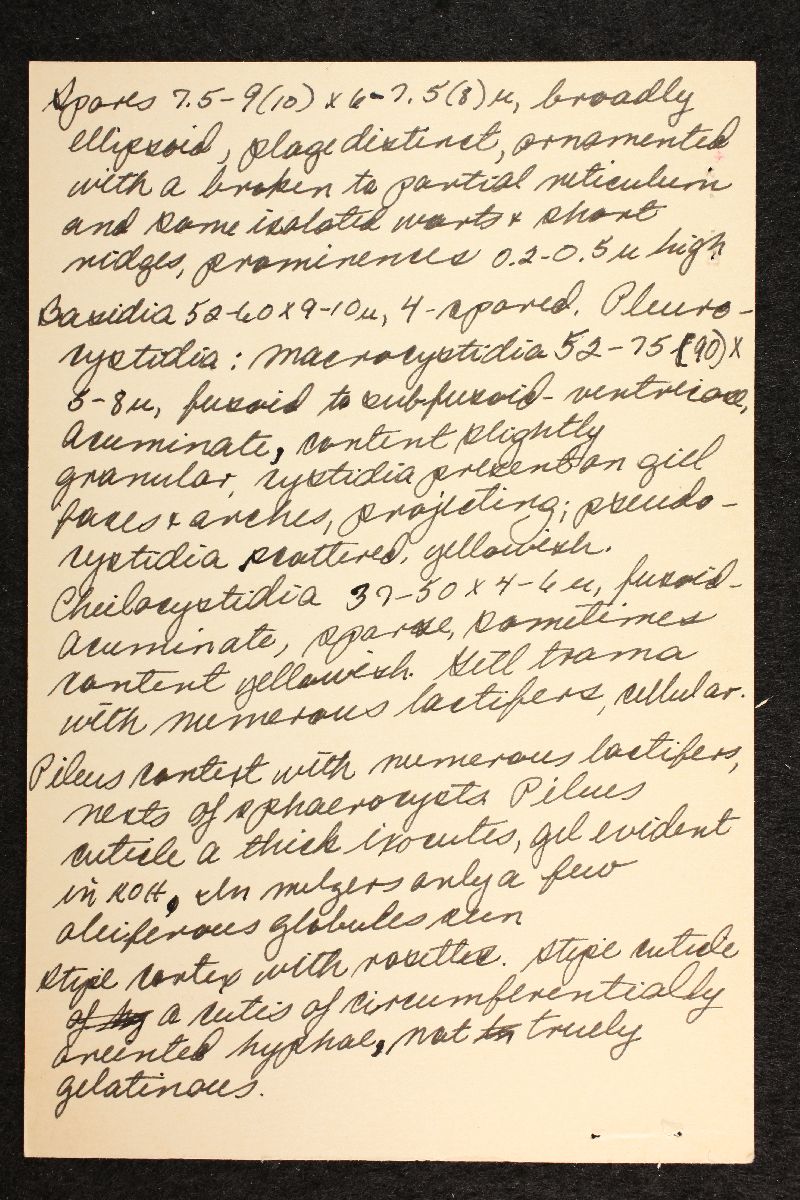 Spores 7.5-9(10) x 6-7.5(8) u, broadly
ellipsoid, plage distinct, ornamented
with a broken to partial reticulum
and some isolated warts & short
ridges, prominences 0.2-0.5 u high
Basidia 52-60 x 9-10 u, 4-spored. Pleuro-
cystidia: macrocystidia 52-75 (90) x
5-8 u, fusoid to subfusoid-ventricose,
acuminate, content slightly
granular, cystidia present on gill
faces & arches, projecting; pseudo-
cystidia scattered, yellowish.
Cheilocystidia 37-50 x 4-6 u, fusoid-
acuminate, sparse, sometimes
content yellowish. Gill trama
with numerous lactifers, cellular.
Pileus context with numerous lactifers,
nests of sphaerocysts. Pileus
cuticle a thick ixocutis, gel evident
in KOH, In melzers only a few
oleiferous globules seen
Stipe cortex with rosettes. Stipe cuticle
of a cutis of circumferentially
oreented hyphae, not truely
gelatinous.